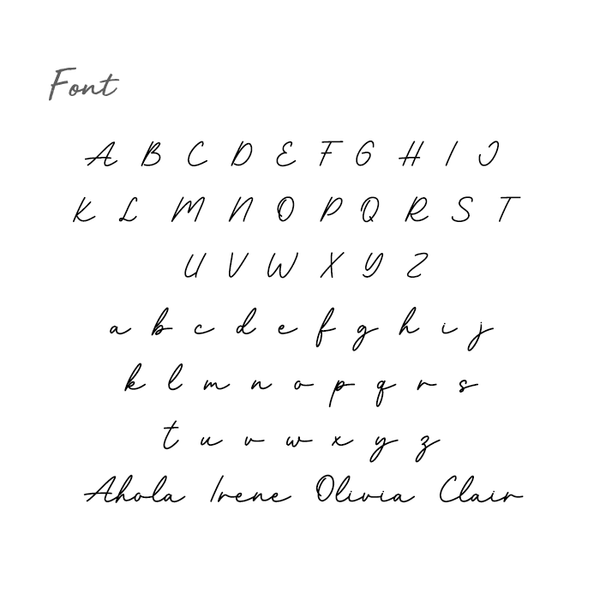 Font
A B C D E F G H I J
K L M N O P Q R S T
U V W X Y Z
a b c d e f g h i j
k l m n o p q r s
t u v w x y z
Ahola Irene Olivia Clair